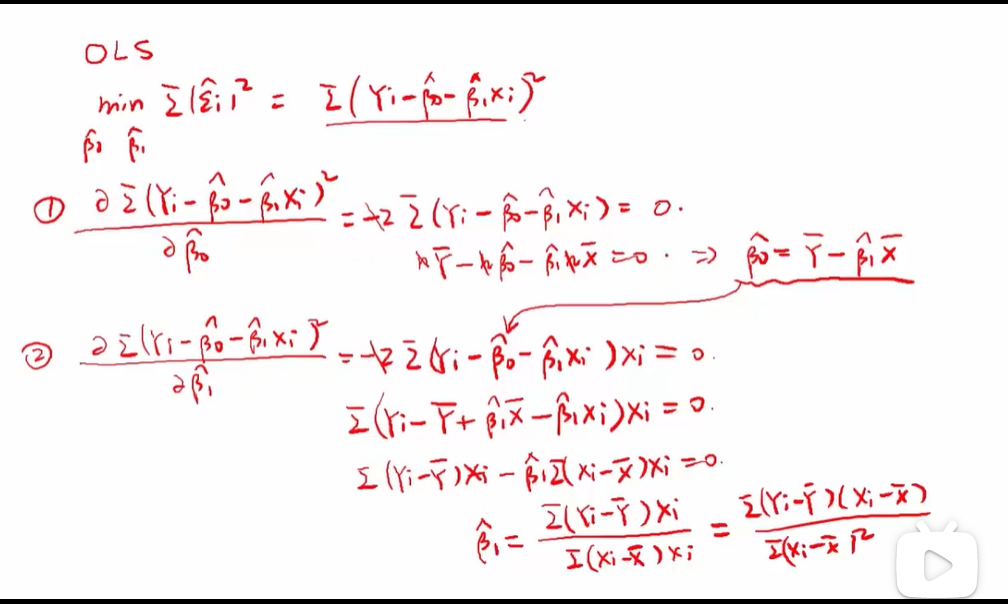 OLS
min Σ(ε̂i)² = Σ(Yi-β̂0-β̂1Xi)²
β̂0 β̂1
① ∂Σ(Yi-β̂0-β̂1Xi)² / ∂β̂0 = -2Σ(Yi-β̂0-β̂1Xi) = 0.
nȲ-nβ̂0-β̂1nX̄ = 0. ⇒ β̂0 = Ȳ-β̂1X̄
② ∂Σ(Yi-β̂0-β̂1Xi)² / ∂β̂1 = -2Σ(Yi-β̂0-β̂1Xi)Xi = 0.
Σ(Yi-Ȳ+β̂1X̄-β̂1Xi)Xi = 0.
Σ(Yi-Ȳ)Xi-β̂1Σ(Xi-X̄)Xi = 0.
β̂1 = Σ(Yi-Ȳ)Xi / Σ(Xi-X̄)Xi = Σ(Yi-Ȳ)(Xi-X̄) / Σ(Xi-X̄)²